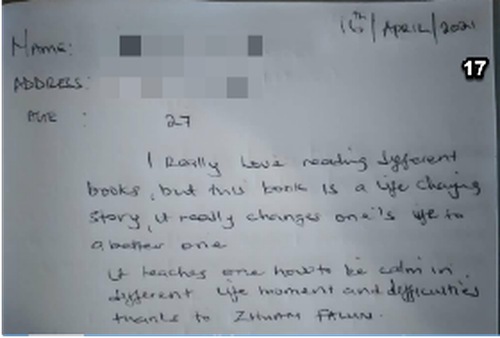 16th/APRIL/2021
NAME:
17
ADDRESS:
AGE : 27
I Really Love reading different
books, but this book is a life changing
story, it really changes one's life to
a better one
it teaches one how to be calm in
different life moment and difficulties
thanks to ZHUAN FALUN.